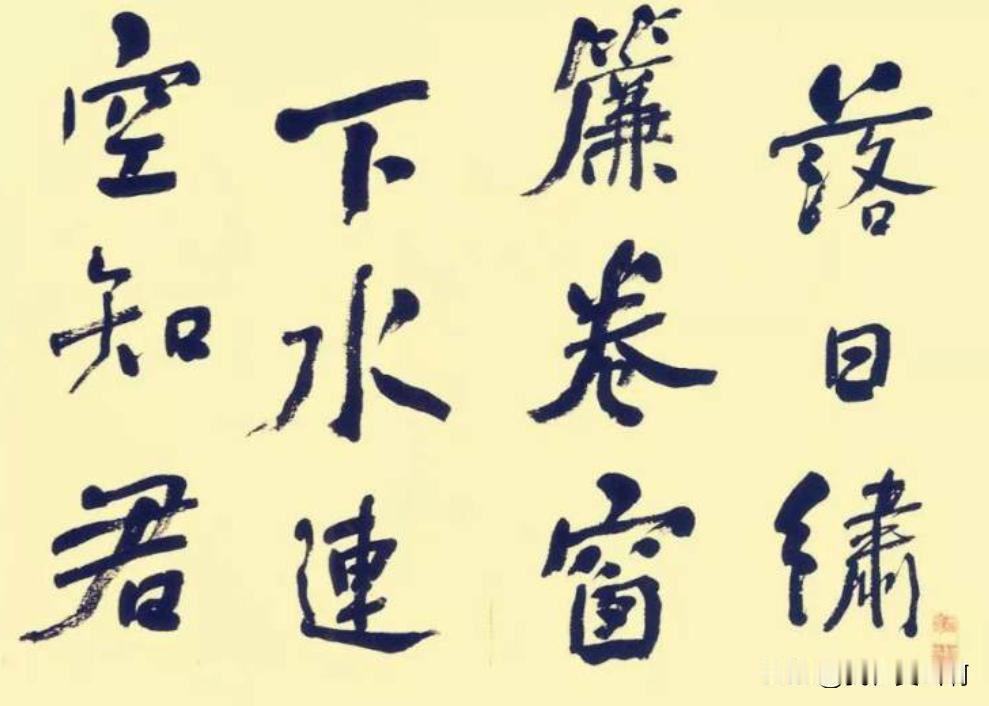 落日繡
簾卷窗
下水連
空知君